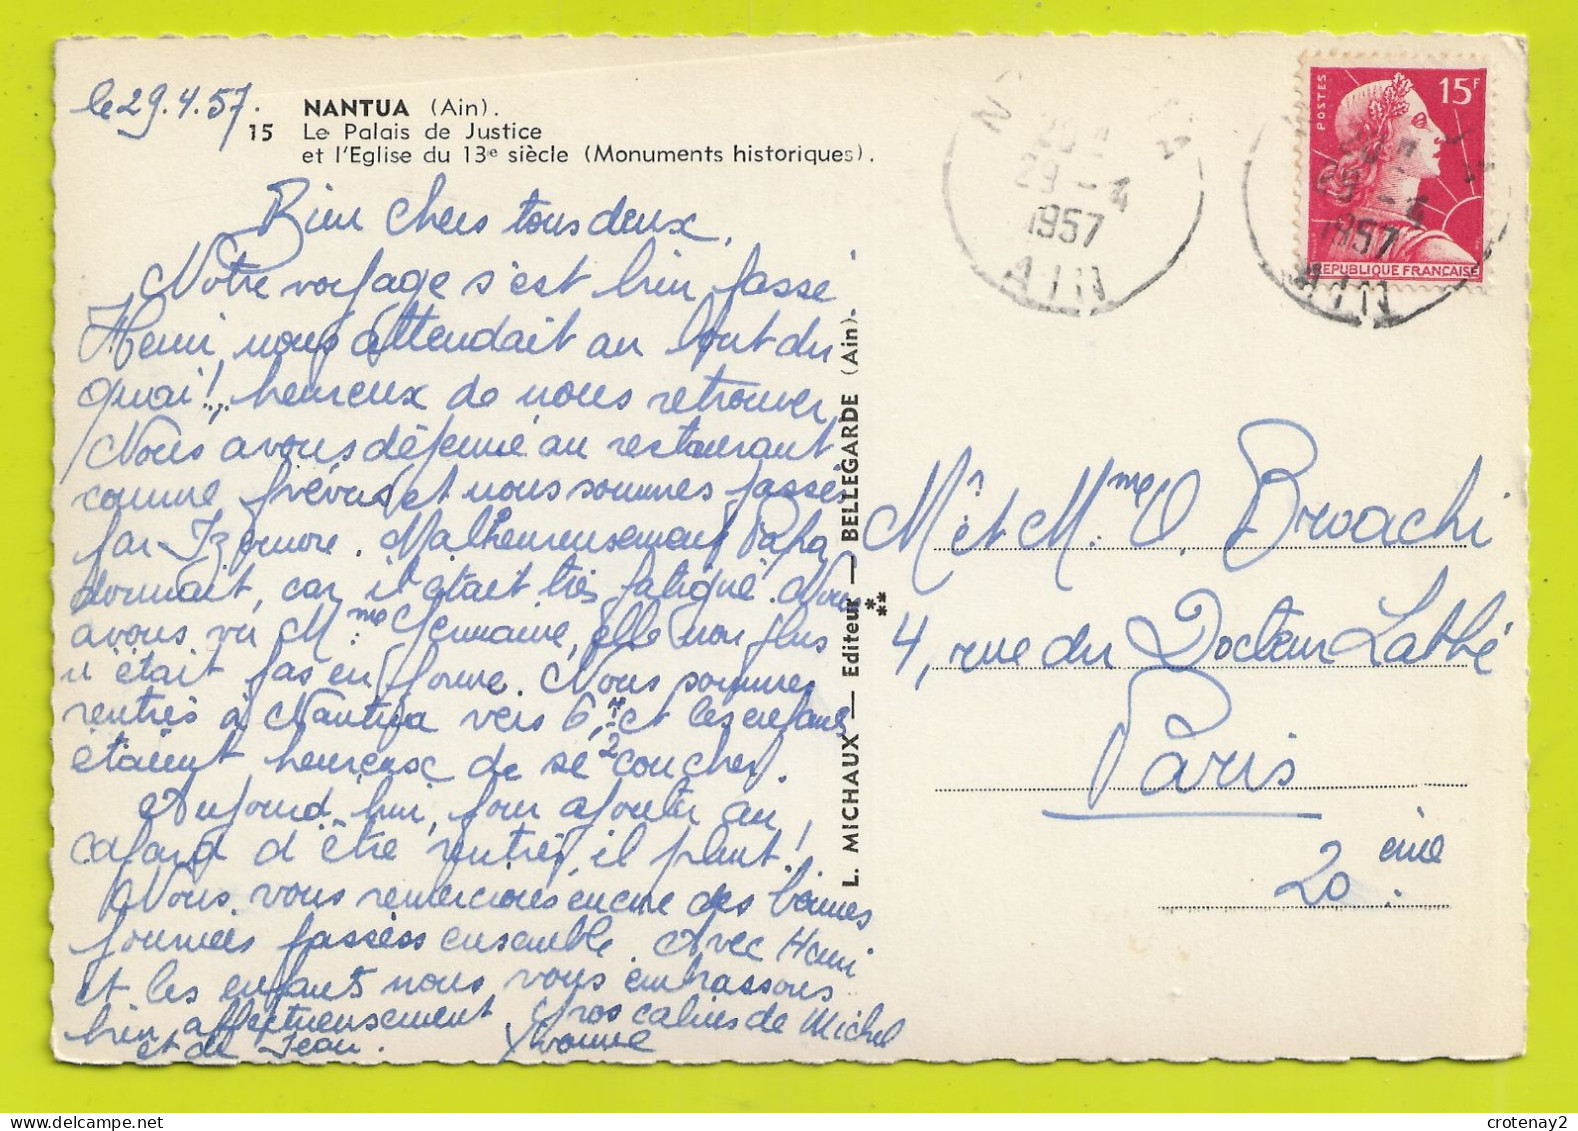 le 29.4.57.
NANTUA (Ain).
15 Le Palais de Justice
et l'Eglise du 13e siècle (Monuments historiques).
Bien chers tous deux,
Notre voyage s'est bien passé
Henri nous attendait au bout du
quai!.., heureux de nous retrouver
Nous avons déjeuné au restaurant
comme prévu et nous sommes passés
par Izernore. Malheureusement Papa
dormait, car il était très fatigué. Nous
avons vu Mme Germaine, elle non plus
n'était pas en forme. Nous sommes
rentrés à Nantua vers 6h 1/2 et les enfants
étaient heureux de se coucher.
Aujourd'hui, pour ajouter au
cafard d'être rentrés, il pleut!
Nous vous remercions encore des bonnes
journées passées ensemble. Avec Henri
et les enfants nous vous embrassons
bien affectueusement Gros calins de Michel
et de Jean. Yvonne
L. MICHAUX — Editeur — BELLEGARDE (Ain).
20
29 - 4
1957
AIN
POSTES
15F
REPUBLIQUE FRANÇAISE
29 - 4
1957
AIN
Mr et Mme O. Brvachi
4, rue du Docteur Labbé
Paris
20 ème
crotenay2